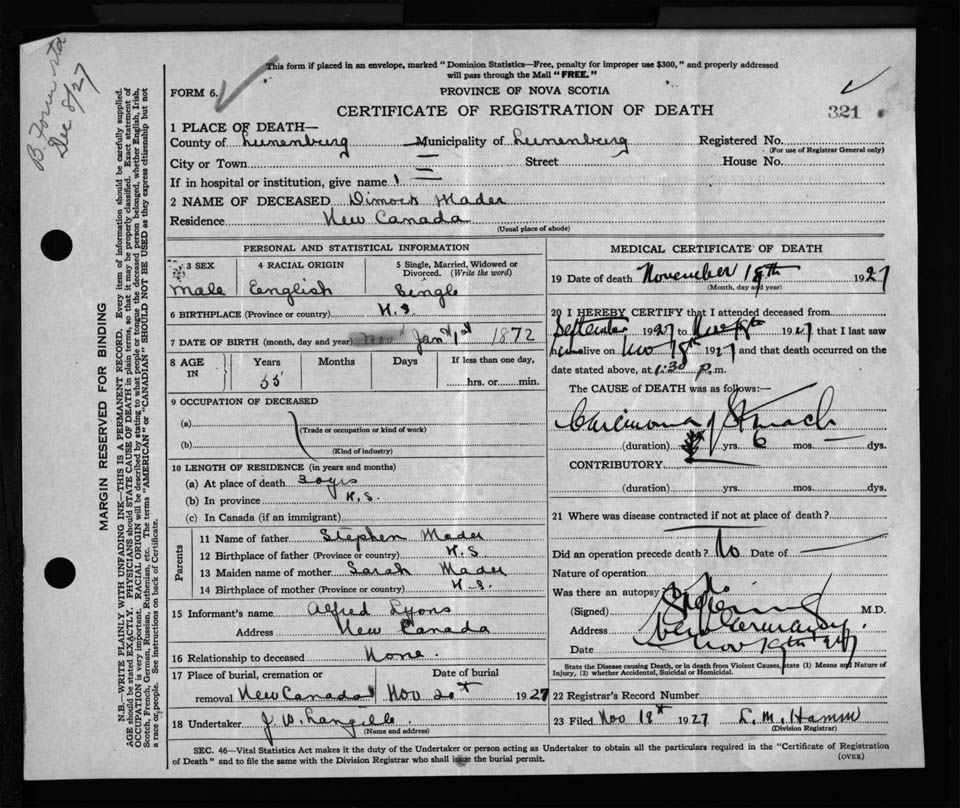 This form if placed in an envelope, marked "Dominion Statistics—Free, penalty for improper use $300," and properly addressed
will pass through the Mail "FREE."
FORM 6.
PROVINCE OF NOVA SCOTIA
CERTIFICATE OF REGISTRATION OF DEATH
321
Dec. 8/27
1 PLACE OF DEATH—
County of Lunenburg Municipality of Lunenburg Registered No.
(For use of Registrar General only)
City or Town — Street House No.
If in hospital or institution, give name
2 NAME OF DECEASED Dimock Mader
Residence New Canada
(Usual place of abode)
PERSONAL AND STATISTICAL INFORMATION
3 SEX 4 RACIAL ORIGIN 5 Single, Married, Widowed or
Divorced. (Write the word)
Male English Single
6 BIRTHPLACE (Province or country) N.S.
7 DATE OF BIRTH (month, day and year) Jan 1st 1872
8 AGE IN Years Months Days If less than one day,
55 hrs. or min.
9 OCCUPATION OF DECEASED
(a)
(Trade or occupation or kind of work)
(b)
(Kind of industry)
10 LENGTH OF RESIDENCE (in years and months)
(a) At place of death 30 yrs
(b) In province N.S.
(c) In Canada (if an immigrant)
Parents
11 Name of father Stephen Mader
12 Birthplace of father (Province or country) N.S
13 Maiden name of mother Sarah Mader
14 Birthplace of mother (Province or country) N.S.
15 Informant's name Alfred Lyons
Address New Canada
16 Relationship to deceased None.
17 Place of burial, cremation or Date of burial
removal New Canada Nov 20th 1927
18 Undertaker J. W. Langille
(Name and address)
MEDICAL CERTIFICATE OF DEATH
19 Date of death November 18th 1927
(Month, day and year)
20 I HEREBY CERTIFY that I attended deceased from
September 1927 to Nov 18th 1927, that I last saw
him alive on Nov 18th 1927 and that death occurred on the
date stated above, at 1:30 p.m.
The CAUSE of DEATH was as follows:—
Carcinoma of Stomach
(duration) yrs. 6 mos. — dys.
CONTRIBUTORY
(duration) yrs. mos. dys.
21 Where was disease contracted if not at place of death?
Did an operation precede death? No Date of —
Nature of operation
Was there an autopsy No
(Signed) M.D.
Address New Germany.
Date Nov 19th 27
State the Disease causing Death, or in death from Violent Causes, state (1) Means and Nature of
Injury, (2) whether Accidental, Suicidal or Homicidal.
22 Registrar's Record Number
23 Filed Nov 18th 1927 L. M. Hamm
(Division Registrar)
SEC. 46—Vital Statistics Act makes it the duty of the Undertaker or person acting as Undertaker to obtain all the particulars required in the "Certificate of Registration
of Death" and to file the same with the Division Registrar who shall issue the burial permit.
(OVER)
MARGIN RESERVED FOR BINDING
N.B.—WRITE PLAINLY WITH UNFADING INK—THIS IS A PERMANENT RECORD. Every item of information should be carefully supplied.
AGE should be stated EXACTLY. PHYSICIANS should STATE CAUSE OF DEATH in plain terms, so that it may be properly classified. Exact statement of
OCCUPATION is very important. RACIAL ORIGIN will be described by stating to what people or tongue the deceased person belonged, whether English, Irish,
Scotch, French, German, Russian, Ruthenian, etc. The terms "AMERICAN" or "CANADIAN" SHOULD NOT BE USED as they express citizenship but not
a race or people. See instructions on back of Certificate.